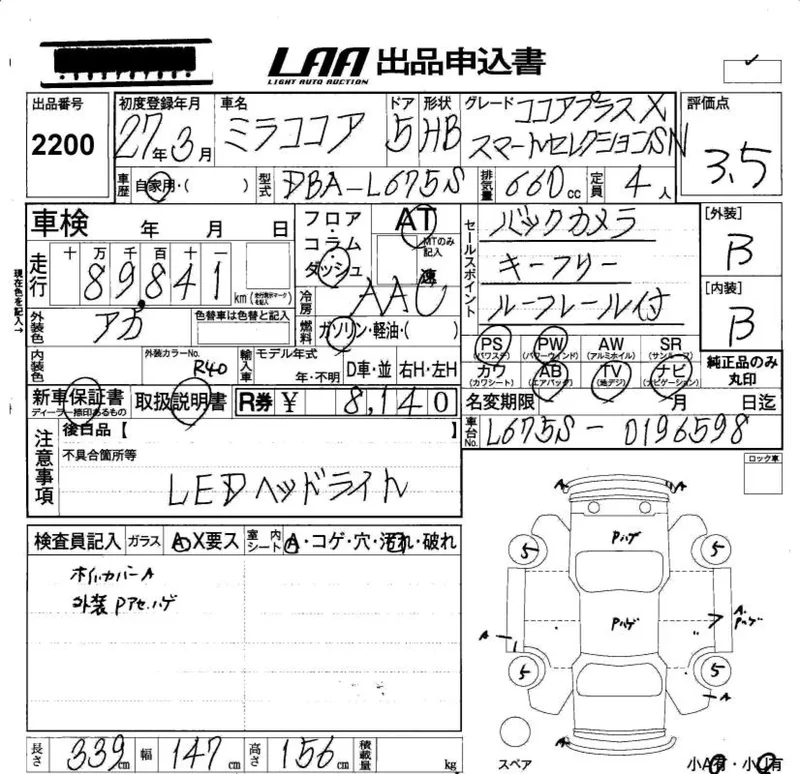 LAA 出品申込書
LIGHT AUTO AUCTION
出品番号
2200
初度登録年月
27年3月
車名
ミラココア
ドア
5
形状
HB
グレード
ココアプラスX
スマートセレクションSN
評価点
3.5
車歴
自家用・( )
型式
DBA-L675S
排気量
660cc
定員
4人
車検 年 月 日
フロア・
コラム・
ダッシュ
AT
MTのみ
記入
セールスポイント
バックカメラ
キーフリー
ルーフレール付
[外装]
B
[内装]
B
現在色を記入→
走行
十 万 千 百 十 一
89,841
km
冷房
AAC
外装色
アカ
色替車は色替と記入
燃料
ガソリン・軽油・( )
内装色
外装カラーNo.
R40
輸入車
モデル年式
年・不明
D車・並
右H・左H
PS
(パワステ)
PW
(パワーウィンド)
AW
(アルミホイル)
SR
(サンルーフ)
カワ
(カワシート)
AB
(エアバッグ)
TV
(地デジ)
ナビ
(ナビゲーション)
純正品のみ
丸印
新車保証書
ディーラー捺印あるもの
取扱説明書
R券 ¥ 8,140
名変期限 月 日迄
車台No.
L675S-0196598
注意事項
後日品【 】
不具合箇所等
LEDヘッドライト
ロック車
検査員記入
ガラス
A・X要ス
室内
シート
A・コゲ・穴・汚れ・破れ
ホイルカバーA
外装Pアセ、ハゲ
A
A
Pハゲ
5
5
Pハゲ
A.
Pハゲ
A
5
5
A
A
スペア
小A有・小U有
長さ
339cm
幅
147cm
高さ
156cm
積載量
kg